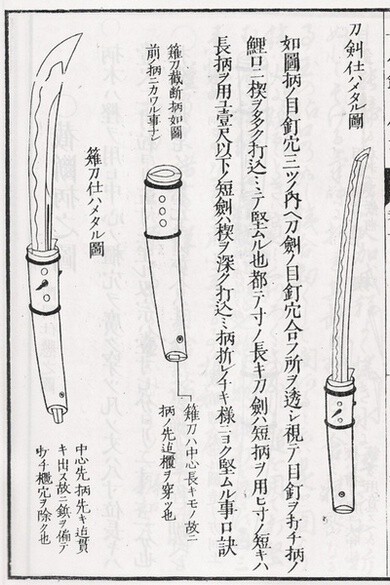 刀劍仕ハメタル圖
如圖柄ノ目釘穴三ツノ内ヘ刀劍ノ目釘穴合フ所ヲ透シ視テ目釘ヲ打チ柄ノ
鯉口ニ楔ヲ多ク打込ミテ堅ムル也都テ寸ノ長キ刀劍ハ短柄ヲ用ヒ寸ノ短キハ
長柄ヲ用ユ壹尺以下ノ短劍ハ楔ヲ深ク打込ミ柄折レナキ様ニヨク堅ムル事口訣
薙刀截断柄如圖
前柄ニカワル事ナシ
薙刀ハ中心長キモノ故ニ
柄ノ先迠櫃ヲ穿ツ也
薙刀仕ハメタル圖
中心先柄先キ迠貫
キ出ス故ニ鉞ヲ備テ
チ櫃穴ヲ除ク也